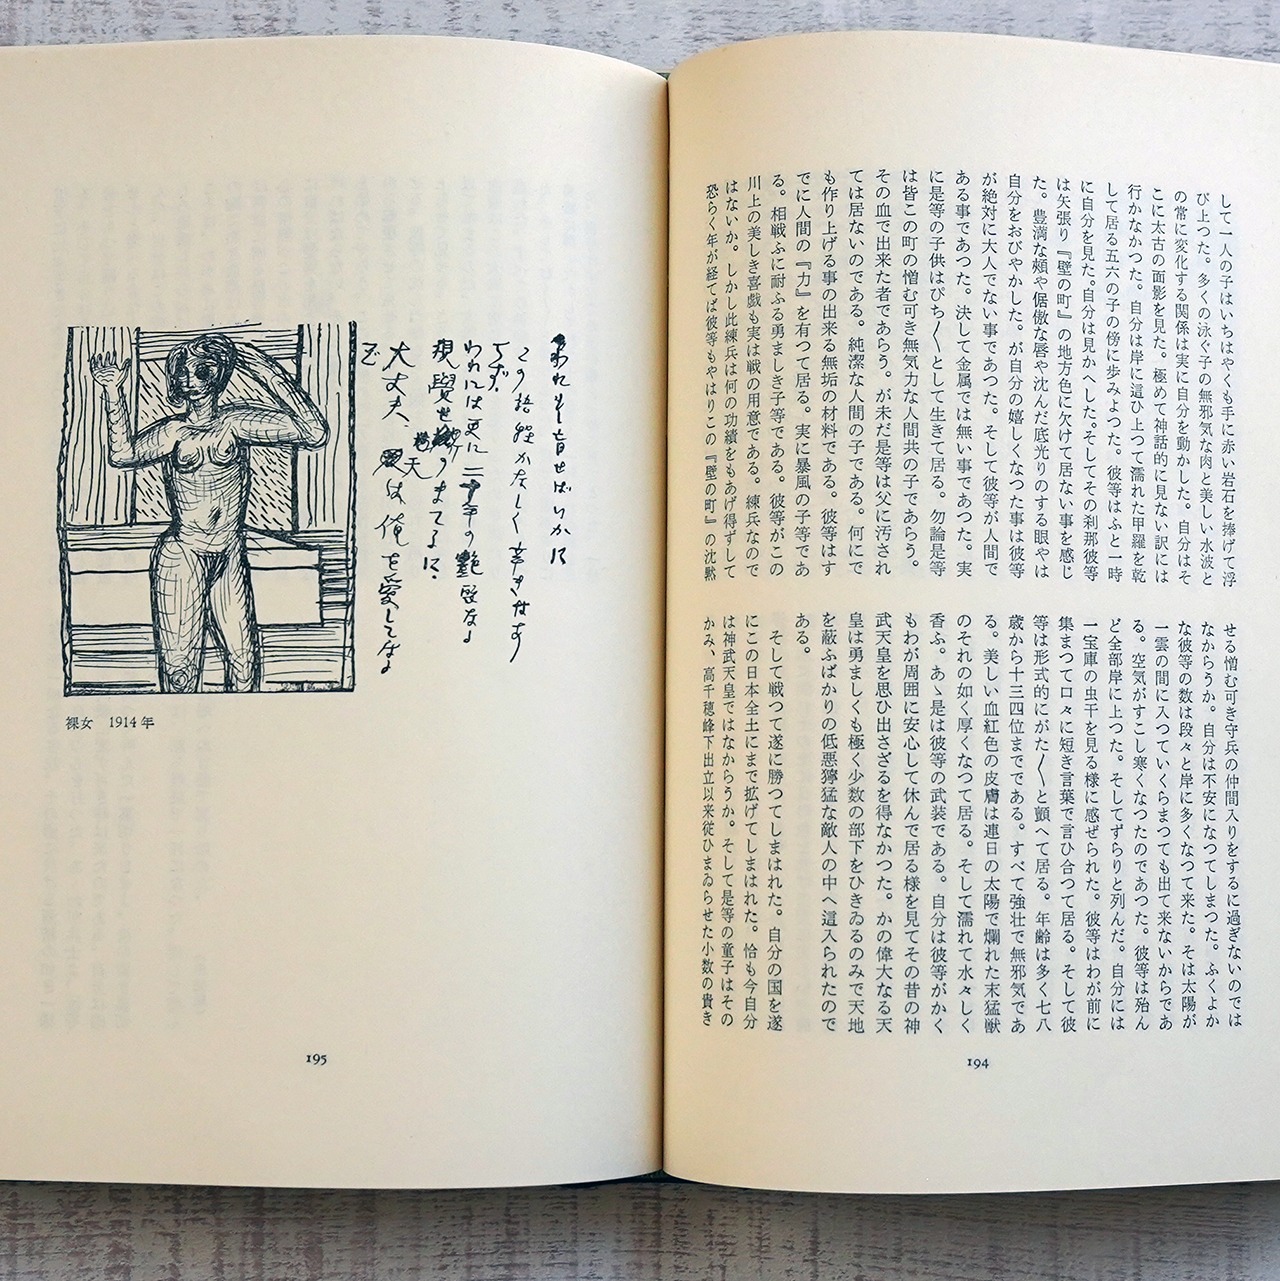 して一人の子はいちはやくも手に赤い岩石を捧げて浮
び上つた。多くの泳ぐ子の無邪気な肉と美しい水波と
の常に変化する関係は実に自分を動かした。自分はそ
こに太古の面影を見た。極めて神話的に見ない訳には
行かなかつた。自分は岸に這ひ上つて濡れた甲羅を乾
して居る五六の子の傍に歩みよつた。彼等はふと一時
に自分を見た。自分は見かへした。そしてその刹那彼等
は矢張り『壁の町』の地方色に欠けて居ない事を感じ
た。豊満な頬や倨傲な唇や沈んだ底光りのする眼やは
自分をおびやかした。が自分の嬉しくなつた事は彼等
が絶対に大人でない事であつた。そして彼等が人間で
ある事であつた。決して金属では無い事であつた。実
に是等の子供はぴち〱として生きて居る。勿論是等
は皆この町の憎む可き無気力な人間共の子であらう。
その血で出来た者であらう。が未だ是等は父に汚され
ては居ないのである。純潔な人間の子である。何にで
も作り上げる事の出来る無垢の材料である。彼等はす
でに人間の『力』を有つて居る。実に暴風の子等であ
る。相戦ふに耐ふる勇ましき子等である。彼等がこの
川上の美しき喜戯も実は戦の用意である。練兵なので
はないか。しかし此練兵は何の功績をもあげ得ずして
恐らく年が経てば彼等もやはりこの『壁の町』の沈黙
せる憎む可き守兵の仲間入りをするに過ぎないのでは
なからうか。自分は不安になつてしまつた。ふくよか
な彼等の数は段々と岸に多くなつて来た。そは太陽が
一雲の間に入つていくらまつても出て来ないからであ
る。空気がすこし寒くなつたのであつた。彼等は殆ん
ど全部岸に上つた。そしてずらりと列んだ。自分には
一宝庫の虫干を見る様に感ぜられた。彼等はわが前に
集まつて口々に短き言葉で言ひ合つて居る。そして彼
等は形式的にがた〱と顫へて居る。年齢は多く七八
歳から十三四位までである。すべて強壮で無邪気であ
る。美しい血紅色の皮膚は連日の太陽で爛れた末猛獣
のそれの如く厚くなつて居る。そして濡れて水々しく
香ふ。あゝ是は彼等の武装である。自分は彼等がかく
もわが周囲に安心して休んで居る様を見てその昔の神
武天皇を思ひ出さざるを得なかつた。かの偉大なる天
皇は勇ましくも極く少数の部下をひきゐるのみで天地
を蔽ふばかりの低悪獰猛な敵人の中へ這入られたので
ある。
そして戦つて遂に勝つてしまはれた。自分の国を遂
にこの日本全土にまで拡げてしまはれた。恰も今自分
は神武天皇ではなからうか。そして是等の童子はその
かみ、高千穂峰下出立以来従ひまゐらせた小数の貴き
194
われもし盲せばいかに
この語程かなしく辛きなす
らず
われには更に二十年の艶麗なる
視覚せのまてるに.
天
大丈夫、は俺を愛してゐる
裸女 1914年
195